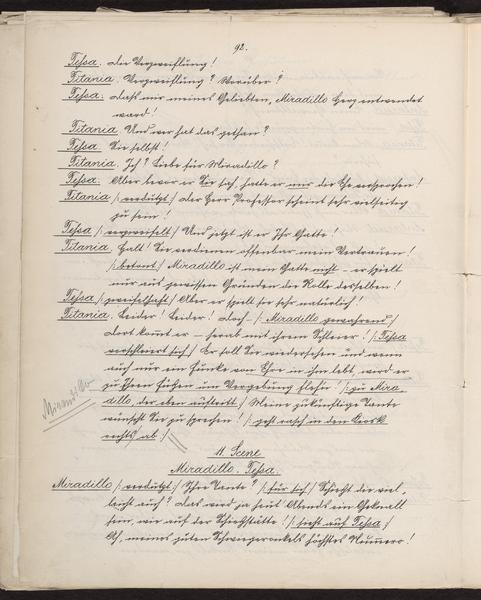 92.
Tessa. Die Verzweiflung!
Titania. Verzweiflung? Worüber?
Tessa. Daß mir meines Geliebten, Miradillo Herz entwendet
ward!
Titania. Und wer hat das gethan?
Tessa. Sie selbst!
Titania. Ich? Liebe für Miradillo?
Tessa. Aber bevor er Sie sah, hatte er mir die Ehe versprochen!
Titania /: verdutzt :/ Der Herr Professor scheint sehr vielseitig
zu sein!
Tessa /: verzweifelt :/ Und jetzt ist er Ihr Gatte!
Titania. Halt! Sie verdienen offenbar mein Vertrauen!
/: betont :/ Miradillo ist mein Gatte nicht – er spielt
nur aus gewissen Gründen die Rolle desselben!
Tessa /: zweifelhaft :/ Aber er spielt sie sehr natürlich!
Titania. Leider! Leider! Doch – /: Miradillo gewahrend :/
dort kommt er – herab mit Ihrem Schleier! /: Tessa
verschleiert sich :/ Er soll Sie wiedersehen und wenn
auch nur ein Funke von Ehre in ihm lebt, wird er
zu Ihren Füßen um Vergebung flehen! /: zu Mira
dillo, der eben auftritt :/ Meine zukünftige Tante
wünscht Sie zu sprechen! /: geht rasch in den Kiosk
rechts ab :/
11. Scene
Miradillo. Tessa.
Miradillo /: verdutzt :/ Ihre Tante? /: für sich :/ Schießt die viel,
leicht auch? Das wird ja heut' Abends ein Geknall
sein, wie auf der Schießstätte! /: sieht auf Tessa :/
Ah, meines guten Schwiegeronkels höchstes Nummero!